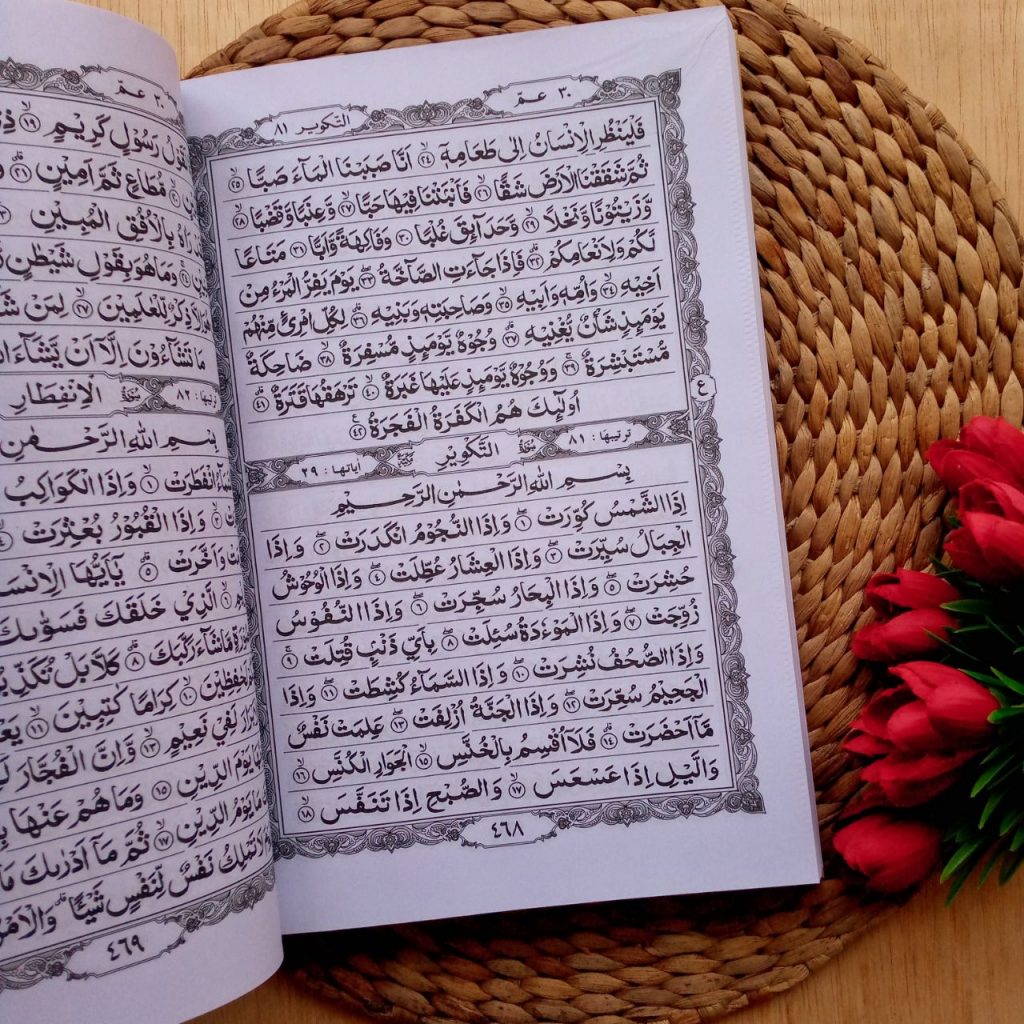 ٣٠ عمّ    التكوير ٨١
فَلْيَنْظُرِ الْاِنْسَانُ اِلٰى طَعَامِهٖٓ ﴿٢٤﴾ اَنَّا صَبَبْنَا الْمَآءَ صَبًّا ﴿٢٥﴾
ثُمَّ شَقَقْنَا الْاَرْضَ شَقًّا ﴿٢٦﴾ فَاَنْبَتْنَا فِيْهَا حَبًّا ﴿٢٧﴾ وَّعِنَبًا وَّقَضْبًا ﴿٢٨﴾
وَّزَيْتُوْنًا وَّنَخْلًا ﴿٢٩﴾ وَّحَدَآئِقَ غُلْبًا ﴿٣٠﴾ وَّفَاكِهَةً وَّاَبًّا ﴿٣١﴾ مَتَاعًا
لَّكُمْ وَلِاَنْعَامِكُمْ ﴿٣٢﴾ فَاِذَا جَآءَتِ الصَّآخَّةُ ﴿٣٣﴾ يَوْمَ يَفِرُّ الْمَرْءُ مِنْ
اَخِيْهِ ﴿٣٤﴾ وَاُمِّهٖ وَاَبِيْهِ ﴿٣٥﴾ وَصَاحِبَتِهٖ وَبَنِيْهِ ﴿٣٦﴾ لِكُلِّ امْرِئٍ مِّنْهُمْ
يَوْمَئِذٍ شَأْنٌ يُّغْنِيْهِ ﴿٣٧﴾ وُجُوْهٌ يَّوْمَئِذٍ مُّسْفِرَةٌ ﴿٣٨﴾ ضَاحِكَةٌ
مُّسْتَبْشِرَةٌ ﴿٣٩﴾ وَوُجُوْهٌ يَّوْمَئِذٍ عَلَيْهَا غَبَرَةٌ ﴿٤٠﴾ تَرْهَقُهَا قَتَرَةٌ ﴿٤١﴾
اُولٰٓئِكَ هُمُ الْكَفَرَةُ الْفَجَرَةُ ﴿٤٢﴾
ع
ترتيبها : ٨١ سُورَةُ التَّكْوِيْرِ مَكِّيَّةٌ آياتها : ٢٩
بِسْمِ اللهِ الرَّحْمٰنِ الرَّحِيْمِ
اِذَا الشَّمْسُ كُوِّرَتْ ﴿١﴾ وَاِذَا النُّجُوْمُ انْكَدَرَتْ ﴿٢﴾ وَاِذَا
الْجِبَالُ سُيِّرَتْ ﴿٣﴾ وَاِذَا الْعِشَارُ عُطِّلَتْ ﴿٤﴾ وَاِذَا الْوُحُوْشُ
حُشِرَتْ ﴿٥﴾ وَاِذَا الْبِحَارُ سُجِّرَتْ ﴿٦﴾ وَاِذَا النُّفُوْسُ
زُوِّجَتْ ﴿٧﴾ وَاِذَا الْمَوْءٗدَةُ سُئِلَتْ ﴿٨﴾ بِاَيِّ ذَنْۢبٍ قُتِلَتْ ﴿٩﴾
وَاِذَا الصُّحُفُ نُشِرَتْ ﴿١٠﴾ وَاِذَا السَّمَآءُ كُشِطَتْ ﴿١١﴾ وَاِذَا
الْجَحِيْمُ سُعِّرَتْ ﴿١٢﴾ وَاِذَا الْجَنَّةُ اُزْلِفَتْ ﴿١٣﴾ عَلِمَتْ نَفْسٌ
مَّآ اَحْضَرَتْ ﴿١٤﴾ فَلَآ اُقْسِمُ بِالْخُنَّسِ ﴿١٥﴾ الْجَوَارِ الْكُنَّسِ ﴿١٦﴾
وَالَّيْلِ اِذَا عَسْعَسَ ﴿١٧﴾ وَالصُّبْحِ اِذَا تَنَفَّسَ ﴿١٨﴾
٤٦٨
٣٠ عمّ
رَسُوْلٍ كَرِيْمٍ ﴿١٩﴾
مُّطَاعٍ ثَمَّ اَمِيْنٍ ﴿٢١﴾
بِالْاُفُقِ الْمُبِيْنِ
وَمَا هُوَ بِقَوْلِ شَيْطٰنٍ
ذِكْرٌ لِّلْعٰلَمِيْنَ ﴿٢٧﴾ لِمَنْ
مَا تَشَآءُوْنَ اِلَّآ اَنْ يَّشَآءَ
ترتيبها : ٨٢ سُورَةُ الْاِنْفِطَارِ
بِسْمِ اللهِ الرَّحْمٰنِ
انْفَطَرَتْ ﴿١﴾ وَاِذَا الْكَوَاكِبُ
وَاِذَا الْقُبُوْرُ بُعْثِرَتْ ﴿٤﴾
وَاَخَّرَتْ ﴿٥﴾ يٰٓاَيُّهَا
الَّذِيْ خَلَقَكَ فَسَوّٰىكَ
مَّا شَآءَ رَكَّبَكَ ﴿٨﴾ كَلَّا بَلْ
﴿١٠﴾ كِرَامًا كٰتِبِيْنَ ﴿١١﴾
لَفِيْ نَعِيْمٍ ﴿١٣﴾ وَاِنَّ الْفُجَّارَ
يَوْمَ الدِّيْنِ ﴿١٥﴾ وَمَا هُمْ عَنْهَا
مَا يَوْمُ الدِّيْنِ ﴿١٧﴾ ثُمَّ مَآ اَدْرٰىكَ مَا
لَا تَمْلِكُ نَفْسٌ لِّنَفْسٍ شَيْئًا
٤٦٩